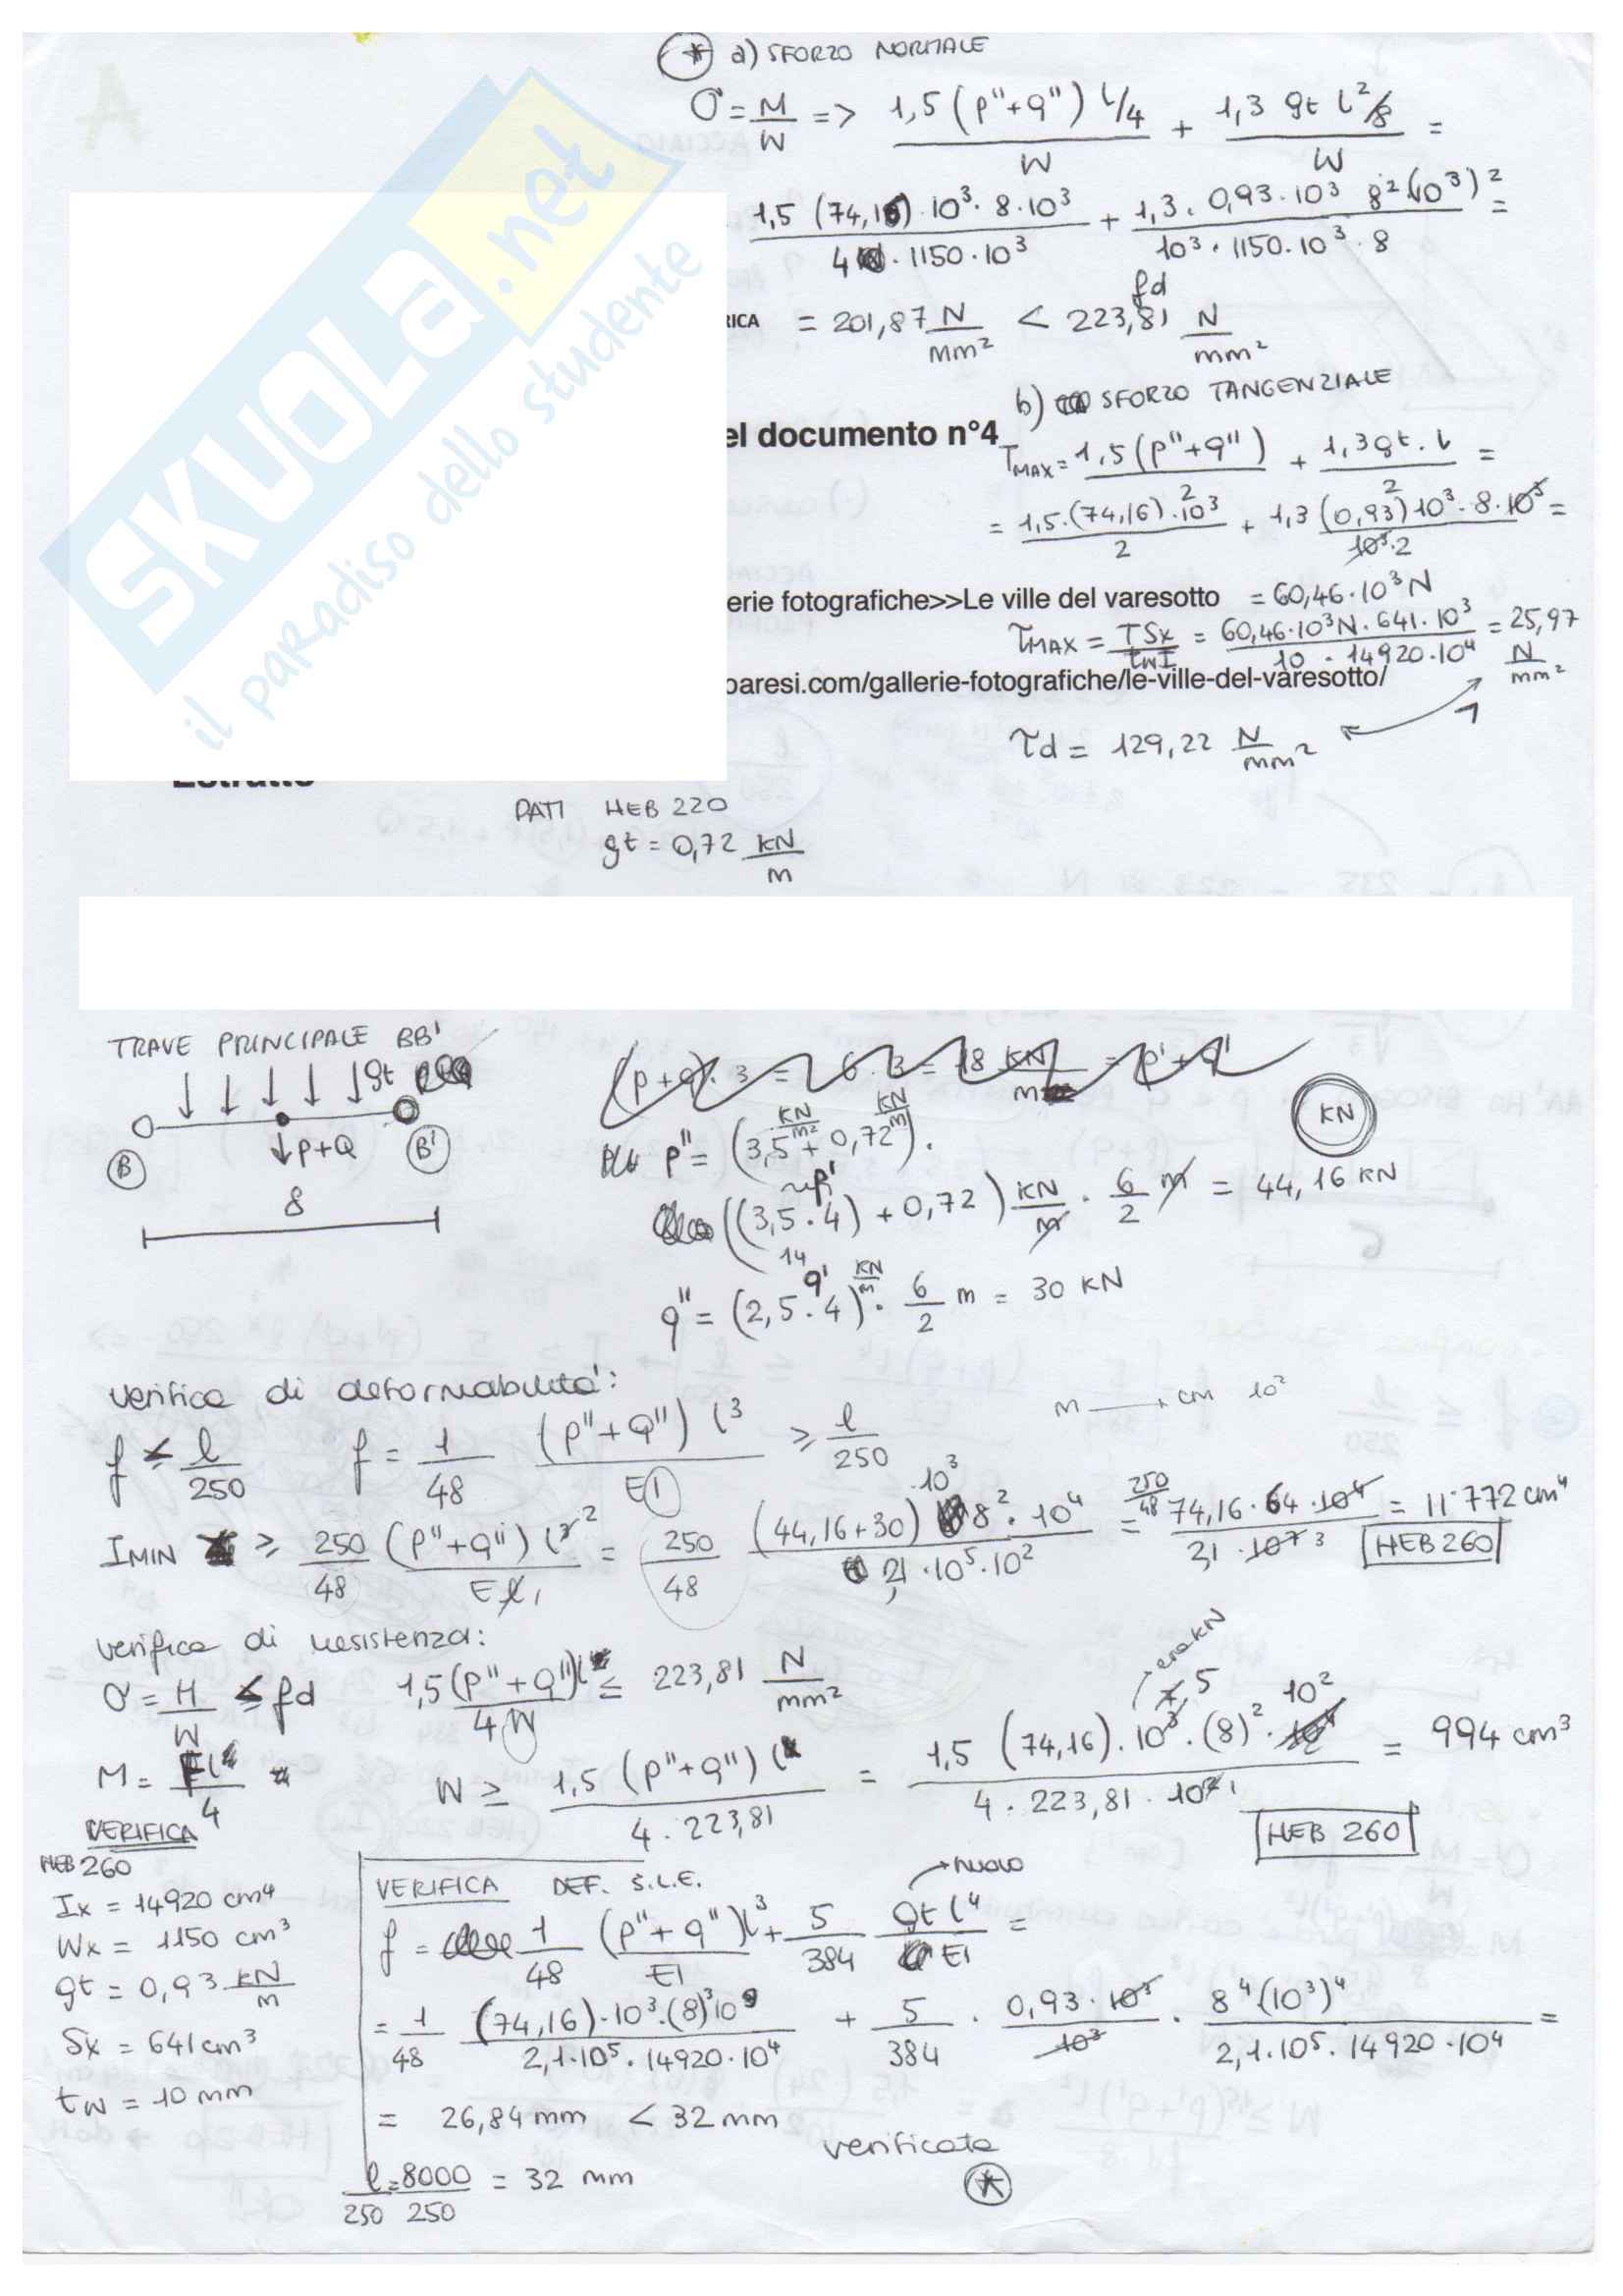 * a) SFORZO NORMALE
σ = M/W => 1,5 (p"+q") l/4 / W + 1,3 gt l²/8 / W =
1,5 (74,16)·10³·8·10³ / 4·1150·10³ + 1,3·0,93·10³ 8²(10³)² / 10³·1150·10³·8 =
RICA = 201,87 N/mm² < 223,81 N/mm²
fd
b) SFORZO TANGENZIALE
el documento n°4
TMAX = 1,5(p"+q") / 2 + 1,3gt·l / 2 =
= 1,5·(74,16)·10³ / 2 + 1,3(0,93)10³·8·10³ / 10³·2 =
erie fotografiche>>Le ville del varesotto = 60,46·10³N
τMAX = TSx / twI = 60,46·10³N·641·10³ / 10·14920·10⁴ = 25,97 N/mm²
paresi.com/gallerie-fotografiche/le-ville-del-varesotto/
τd = 129,22 N/mm²
SKUOLA.net
il paradiso dello studente
Estratto
DATI HEB 220
gt = 0,72 KN/m
TRAVE PRINCIPALE BB'
gt
B P+Q B'
8
(p+q)·3 = 6·3 = 18 KN/m = p'+q'
KN
p" = (3,5 KN/m² + 0,72 KN/m)·
p'
((3,5·4) + 0,72) KN/m · 6/2 m = 44,16 KN
14
q'
q" = (2,5·4) KN/m · 6/2 m = 30 KN
verifica di deformabilità:
m → cm 10²
f ≤ l/250 f = 1/48 (p"+q") l³ / EI ≥ l/250
IMIN ≥ 250/48 (p"+q") l² / E = 250/48 (44,16+30)·10³ 8²·10⁴ / 2,1·10⁵·10² = 250/48 74,16·64·10⁴ / 2,1·10⁷ 3 = 11'772 cm⁴
HEB 260
verifica di resistenza:
σ = M/W ≤ fd 1,5(p"+q")l / 4W ≤ 223,81 N/mm²
era KN
M = Fl/4 W ≥ 1,5 (p"+q") l / 4·223,81 = 1,5 (74,16)·10³·(8)²·10² / 4·223,81·10² 1 = 994 cm³
HEB 260
VERIFICA
HEB 260
Ix = 14920 cm⁴
Wx = 1150 cm³
gt = 0,93 KN/m
Sx = 641 cm³
tw = 10 mm
VERIFICA DEF. S.L.E.
→ nuovo
f = 1/48 (p"+q")l³ / EI + 5/384 gt l⁴ / EI =
= 1/48 (74,16)·10³·(8)³10⁹ / 2,1·10⁵·14920·10⁴ + 5/384 · 0,93·10³ / 10³ · 8⁴(10³)⁴ / 2,1·10⁵·14920·10⁴ =
= 26,84 mm < 32 mm
verificata
*
l/250 = 8000/250 = 32 mm